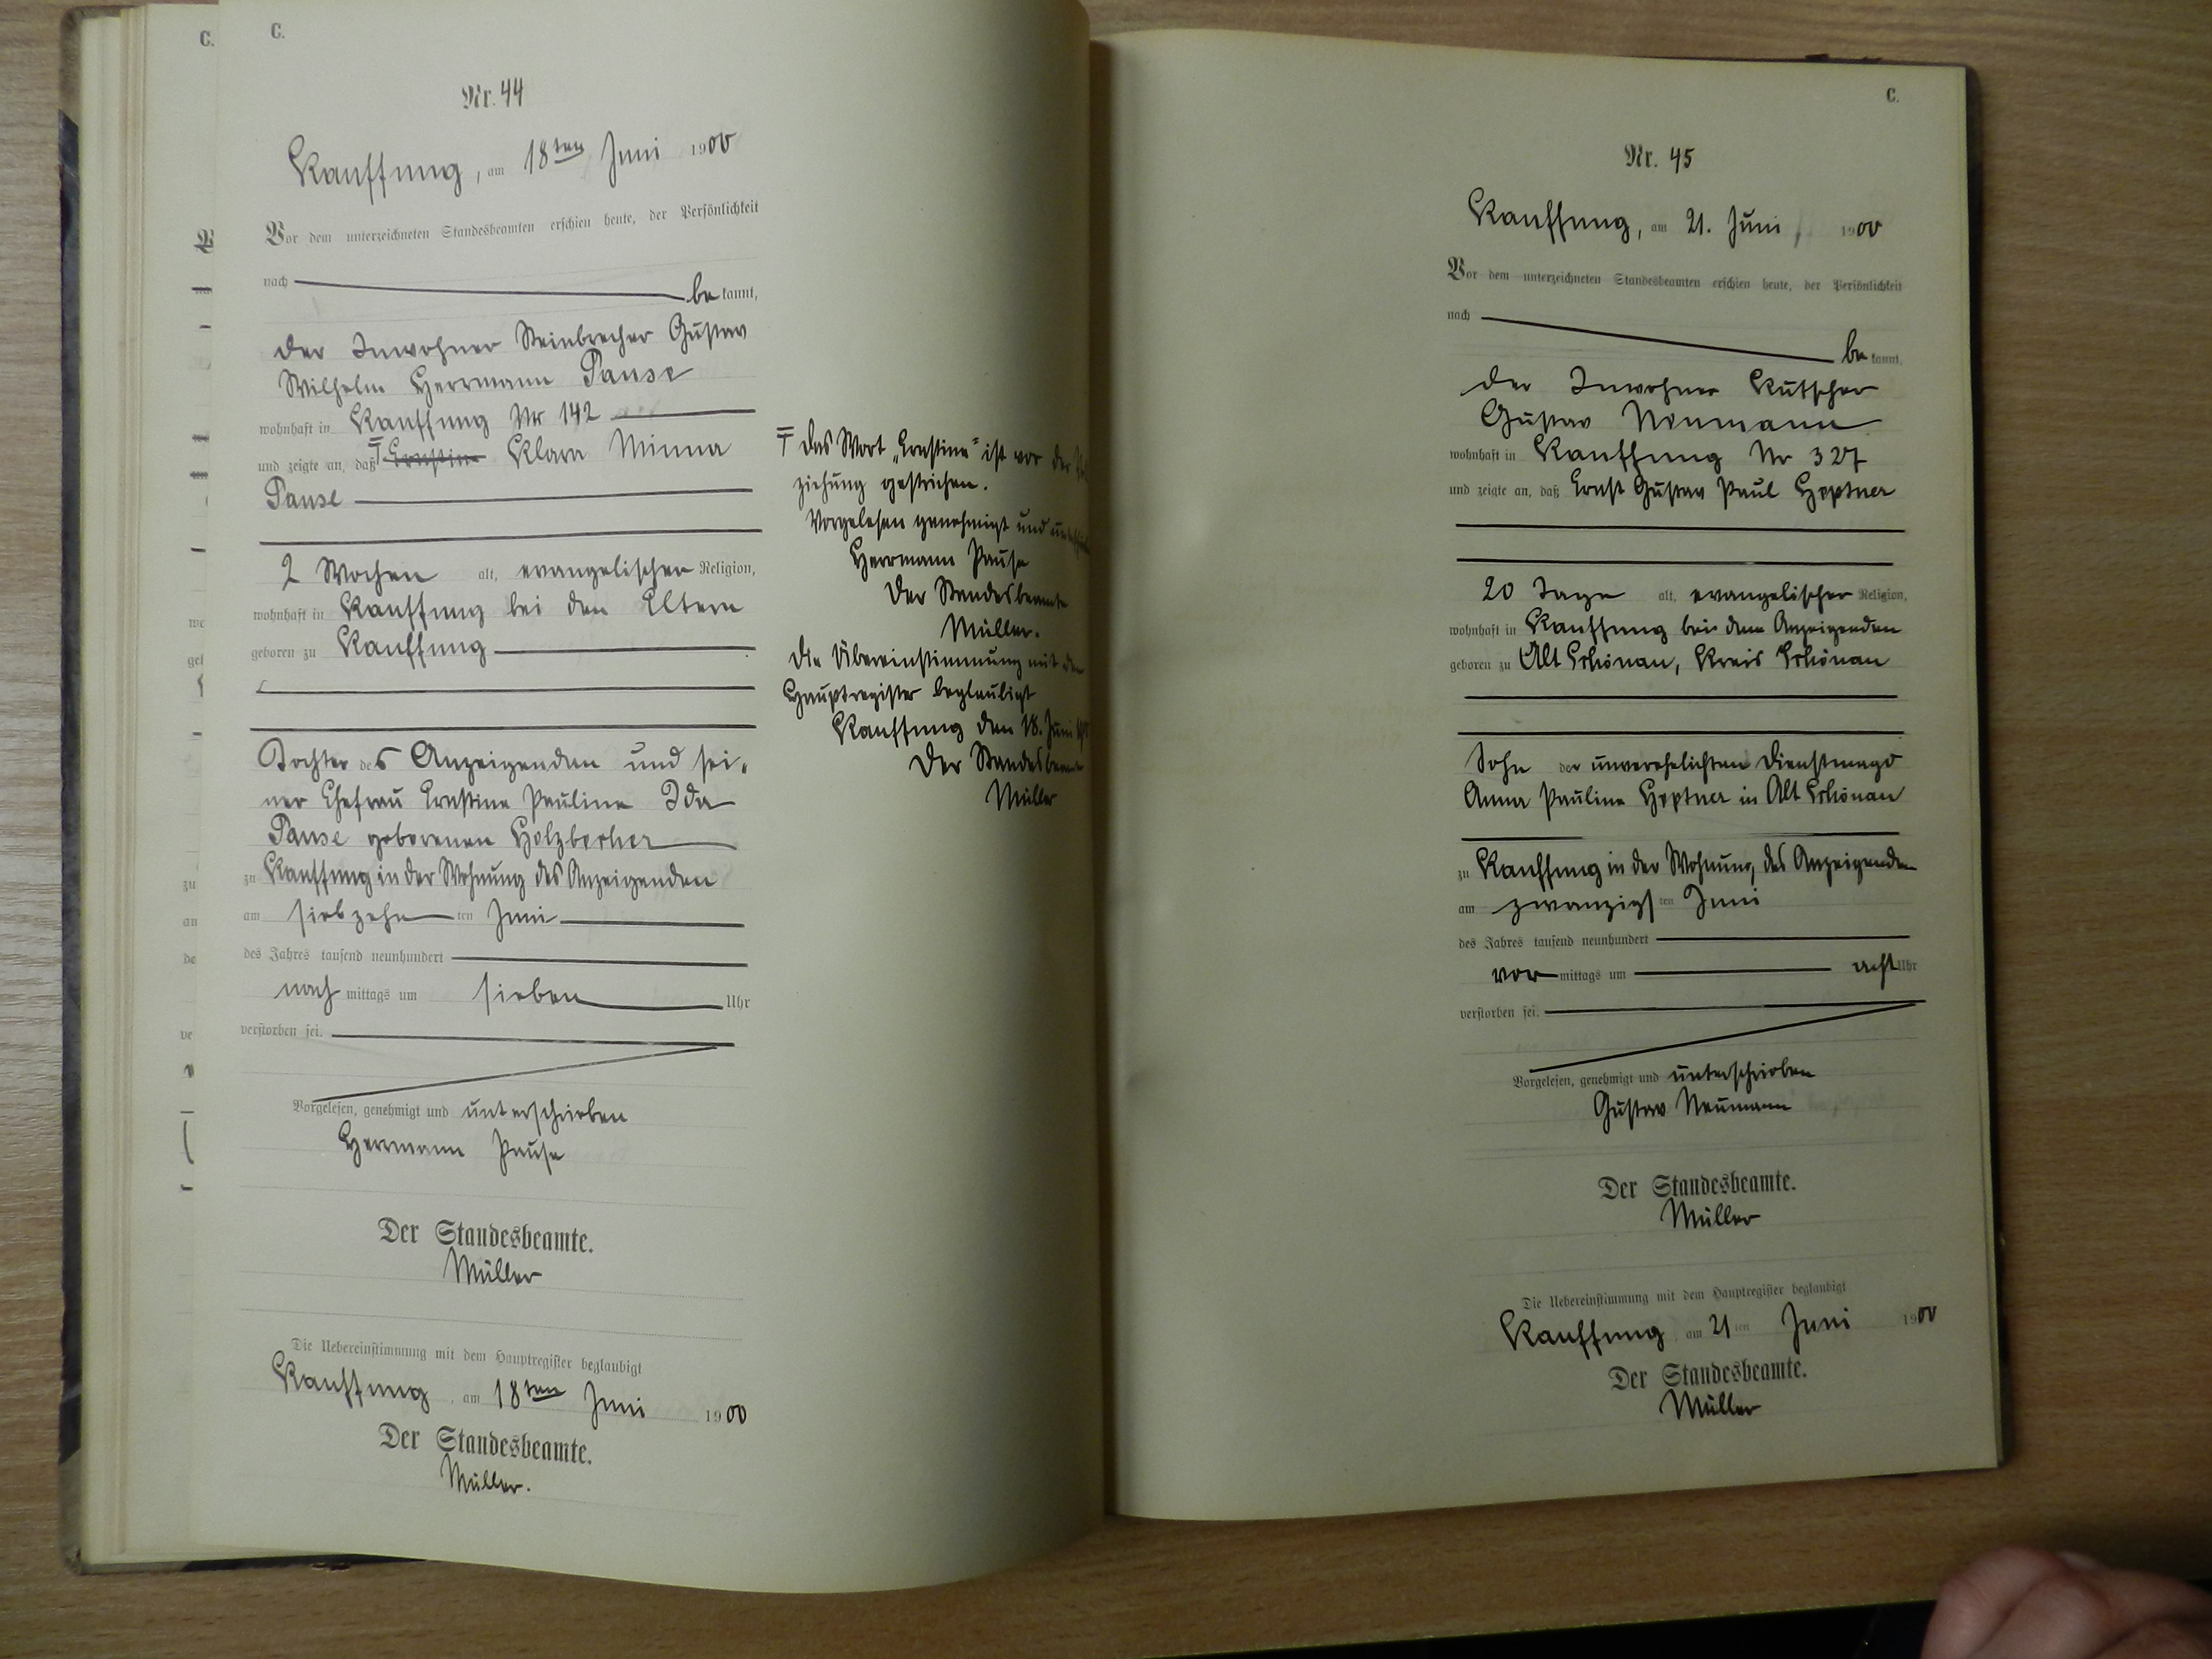 C.
C.
Nr. 44
Kauffung, am 18ten Juni 1900
Vor dem unterzeichneten Standesbeamten erschien heute, der Persönlichkeit
nach be kannt,
der Inwohner Steinbrecher Gustav
Wilhelm Herrmann Pause
wohnhaft in Kauffung Nr 142
und zeigte an, daß Ernstine Klara Minna
Pause
2 Wochen alt, evangelischer Religion,
wohnhaft in Kauffung bei den Eltern
geboren zu Kauffung
Tochter des Anzeigenden und sei-
ner Ehefrau Ernstine Pauline Ida
Pause geborenen Holzbecher
zu Kauffung in der Wohnung des Anzeigenden
am siebzehn ten Juni
des Jahres tausend neunhundert
nach mittags um sieben Uhr
verstorben sei.
Vorgelesen, genehmigt und unterschrieben
Herrmann Pause
Der Standesbeamte.
Müller
Die Uebereinstimmung mit dem Hauptregister beglaubigt
Kauffung, am 18ten Juni 1900
Der Standesbeamte.
Müller.
Das Wort „Ernstine" ist vor der
ziehung gestrichen.
Vorgelesen genehmigt und
Herrmann Pause
Der Standesbeamte
Müller.
Die Übereinstimmung mit dem
Hauptregister beglaubigt
Kauffung den 18. Juni
Der Standesbeamte
Müller
C.
Nr. 45
Kauffung, am 21. Juni 1900
Vor dem unterzeichneten Standesbeamten erschien heute, der Persönlichkeit
nach be kannt,
der Inwohner Kutscher
Gustav Neumann
wohnhaft in Kauffung Nr 327
und zeigte an, daß Ernst Gustav Paul Hoptner
20 Tage alt, evangelischer Religion,
wohnhaft in Kauffung bei dem Anzeigenden
geboren zu Alt Schönau, Kreis Schönau
Sohn der unverehelichten Dienstmagd
Anna Pauline Hoptner in Alt Schönau
zu Kauffung in der Wohnung des Anzeigenden
am zwanzigsten Juni
des Jahres tausend neunhundert
vor mittags um acht Uhr
verstorben sei.
Vorgelesen, genehmigt und unterschrieben
Gustav Neumann
Der Standesbeamte.
Müller
Die Uebereinstimmung mit dem Hauptregister beglaubigt
Kauffung am 21 ten Juni 1900
Der Standesbeamte.
Müller